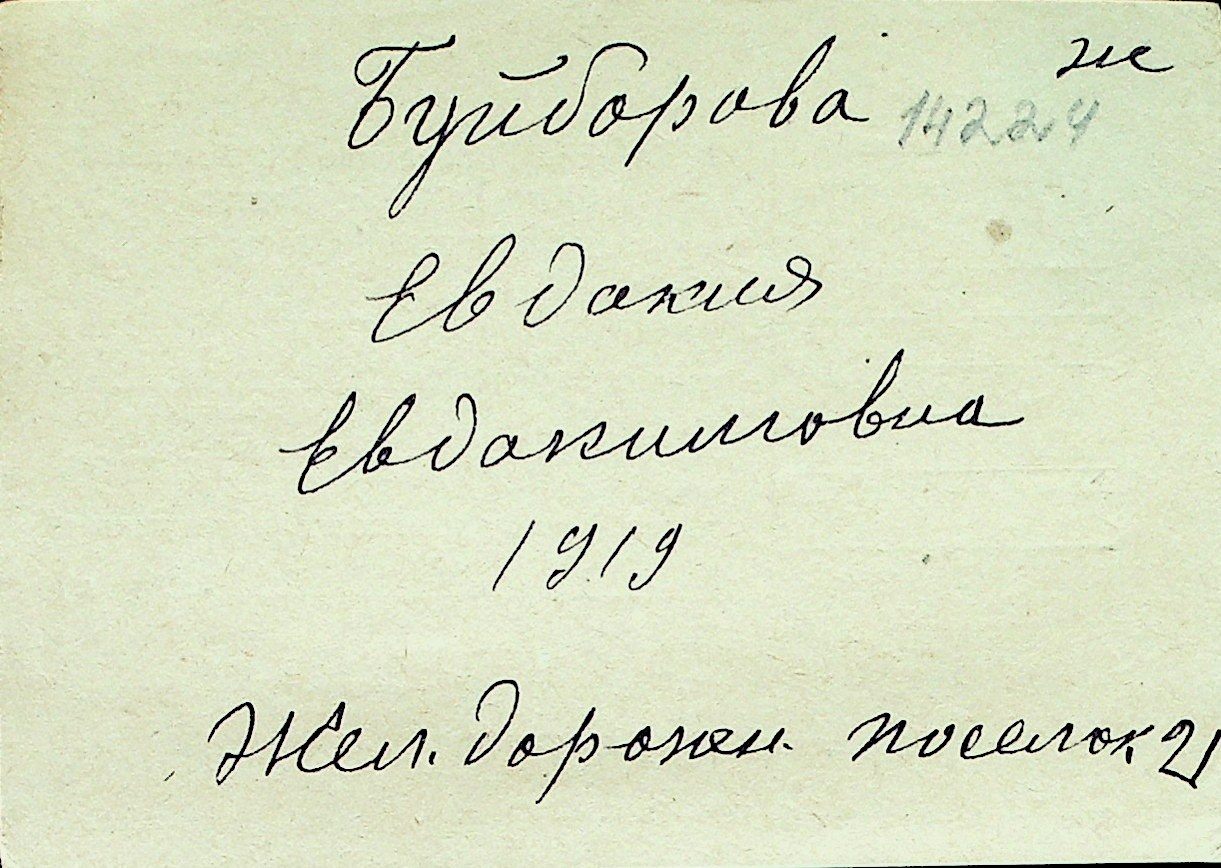 ж
Буйборова 14224
Евдакия
Евдакимовна
1919
Жел. дорожн. поселок 21